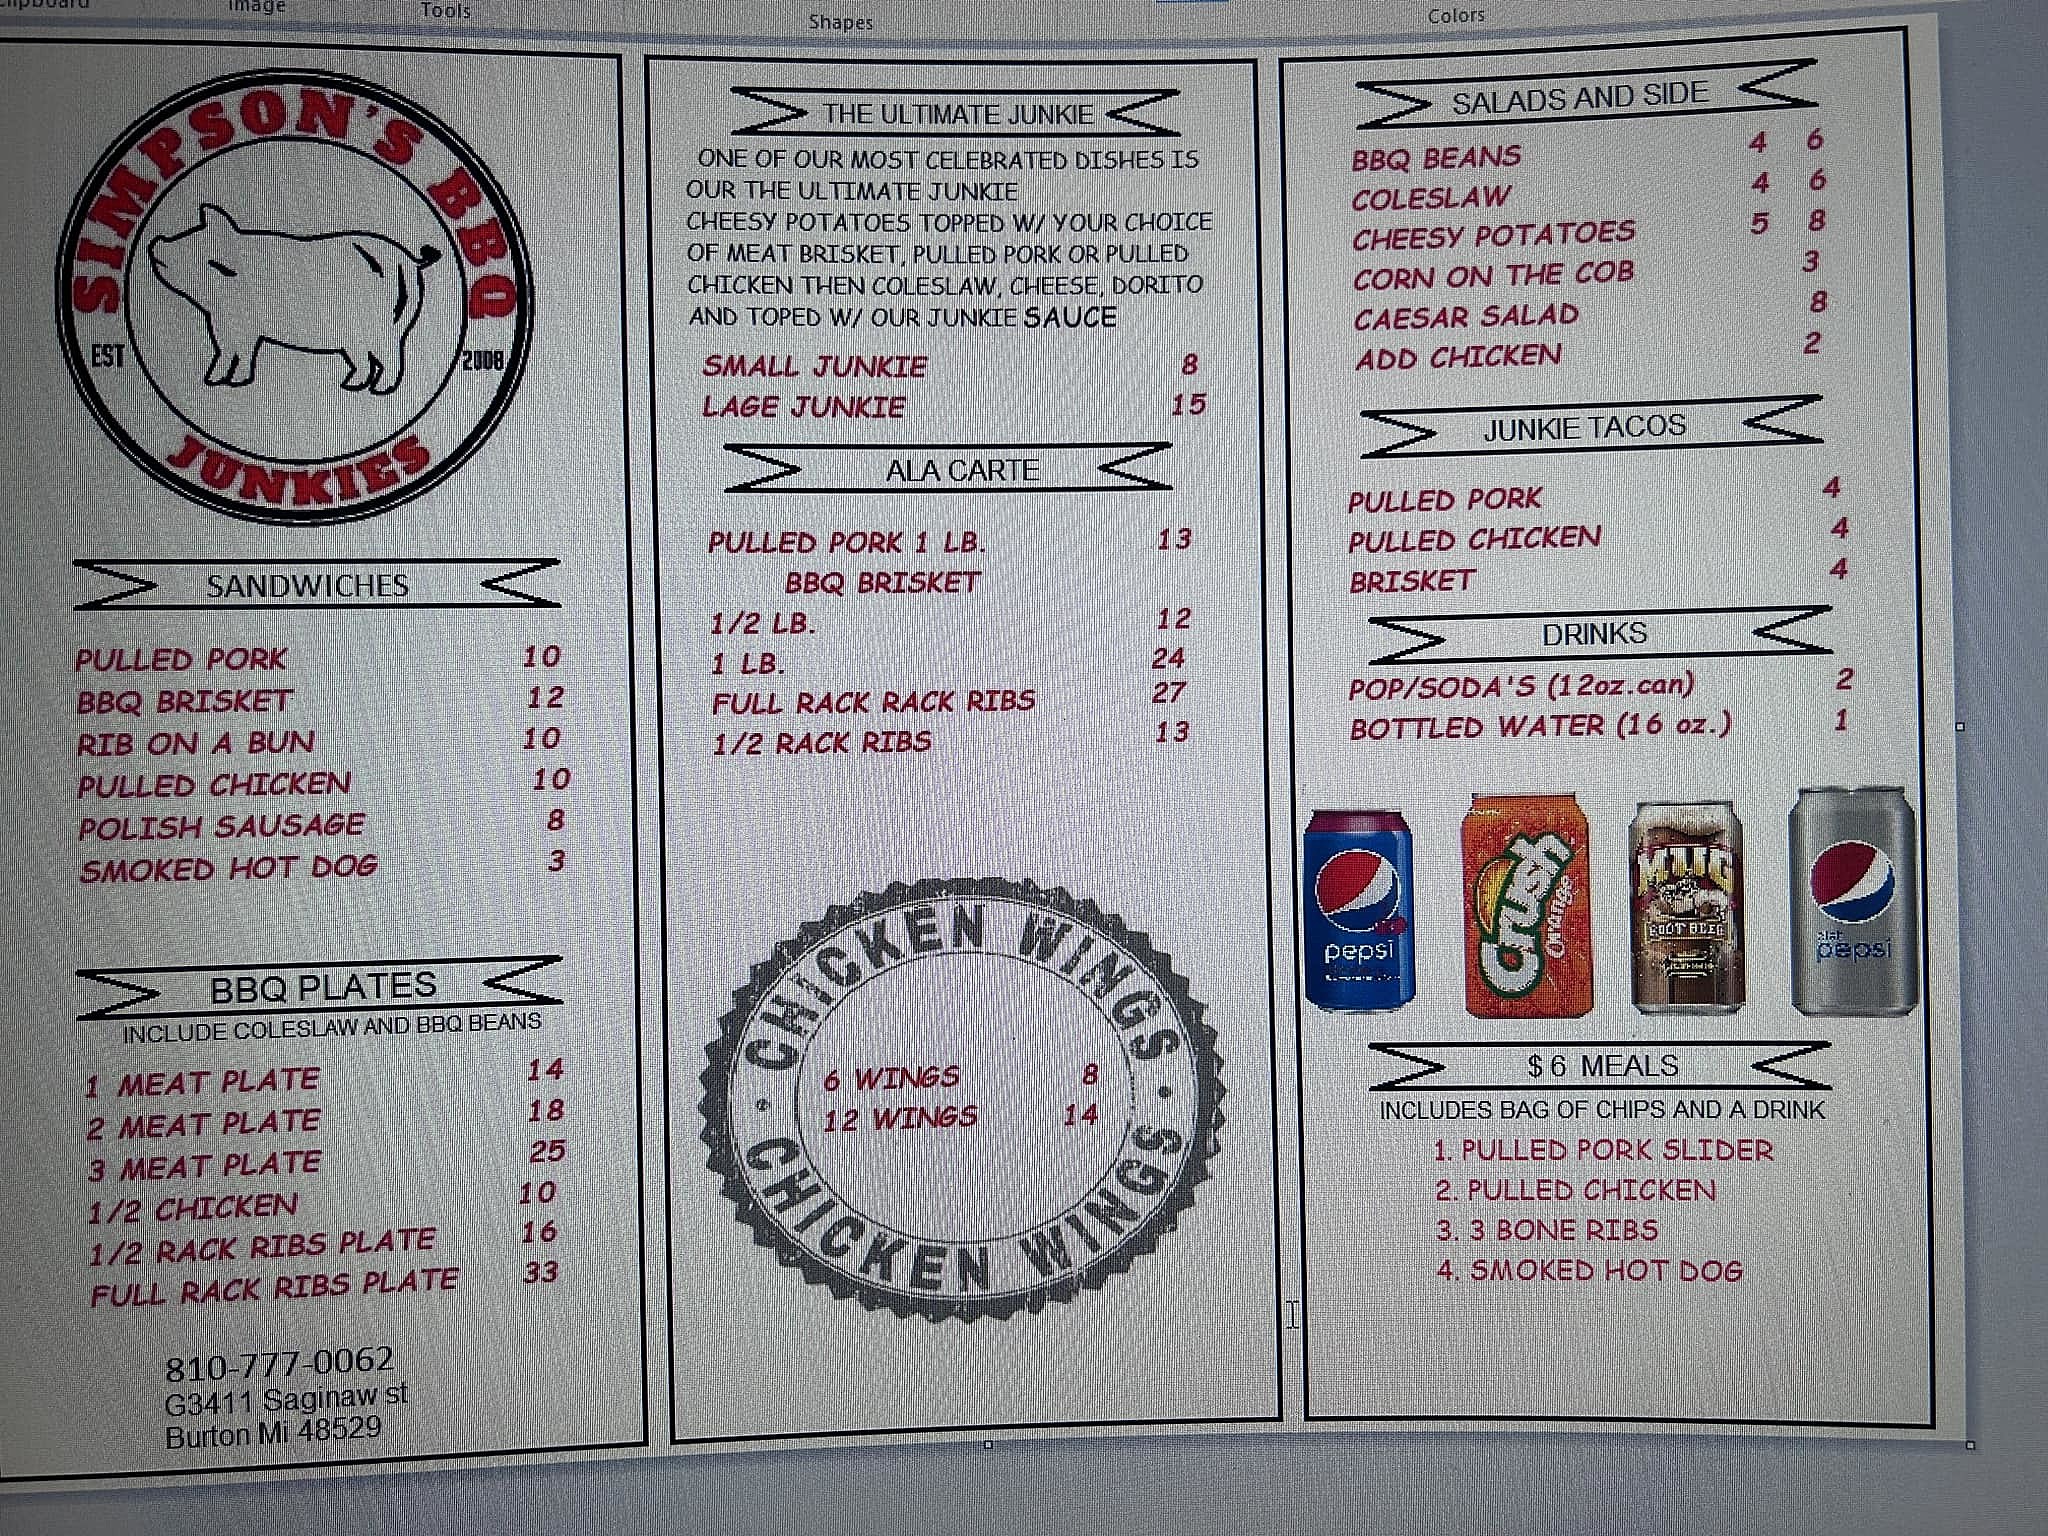 Clipboard
Image
Tools
Shapes
Colors
SIMPSON'S BBQ
EST 2008
JUNKIES
SANDWICHES
PULLED PORK 10
BBQ BRISKET 12
RIB ON A BUN 10
PULLED CHICKEN 10
POLISH SAUSAGE 8
SMOKED HOT DOG 3
BBQ PLATES
INCLUDE COLESLAW AND BBQ BEANS
1 MEAT PLATE 14
2 MEAT PLATE 18
3 MEAT PLATE 25
1/2 CHICKEN 10
1/2 RACK RIBS PLATE 16
FULL RACK RIBS PLATE 33
810-777-0062
G3411 Saginaw st
Burton Mi 48529
THE ULTIMATE JUNKIE
ONE OF OUR MOST CELEBRATED DISHES IS
OUR THE ULTIMATE JUNKIE
CHEESY POTATOES TOPPED W/ YOUR CHOICE
OF MEAT BRISKET, PULLED PORK OR PULLED
CHICKEN THEN COLESLAW, CHEESE, DORITO
AND TOPED W/ OUR JUNKIE SAUCE
SMALL JUNKIE 8
LAGE JUNKIE 15
ALA CARTE
PULLED PORK 1 LB. 13
BBQ BRISKET
1/2 LB. 12
1 LB. 24
FULL RACK RACK RIBS 27
1/2 RACK RIBS 13
CHICKEN WINGS
6 WINGS 8
12 WINGS 14
CHICKEN WINGS
SALADS AND SIDE
BBQ BEANS 4 6
COLESLAW 4 6
CHEESY POTATOES 5 8
CORN ON THE COB 3
CAESAR SALAD 8
ADD CHICKEN 2
JUNKIE TACOS
PULLED PORK 4
PULLED CHICKEN 4
BRISKET 4
DRINKS
POP/SODA'S (12oz.can) 2
BOTTLED WATER (16 oz.) 1
pepsi
Crush
Orange
MUG
ROOT BEER
diet
pepsi
$ 6 MEALS
INCLUDES BAG OF CHIPS AND A DRINK
1. PULLED PORK SLIDER
2. PULLED CHICKEN
3. 3 BONE RIBS
4. SMOKED HOT DOG